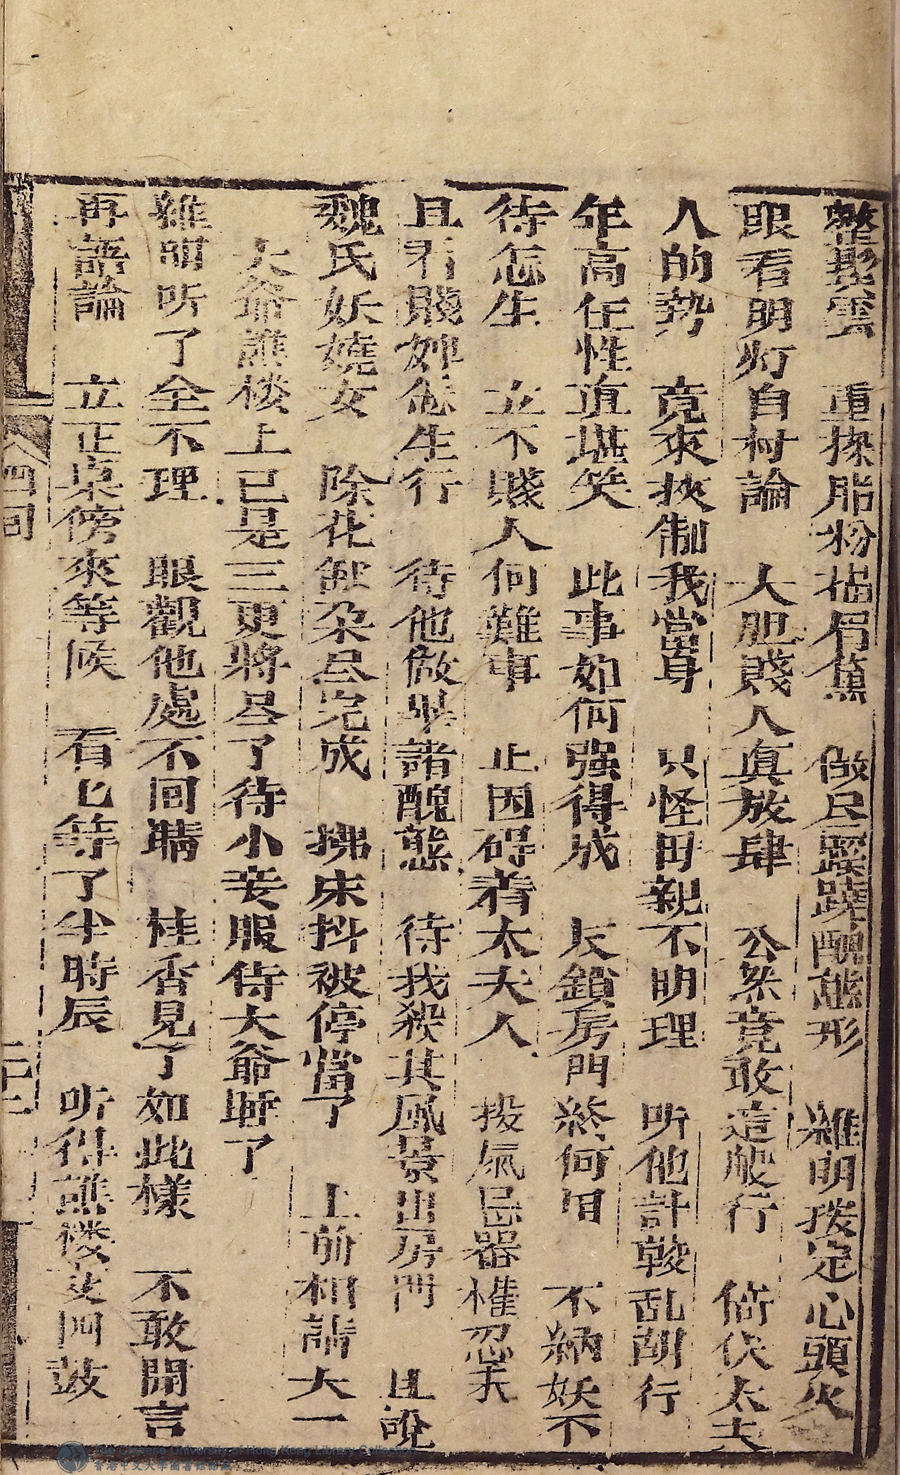 整鬓雲　重搽脂粉描眉黛　做尽蹊蹺醜態形　維明按定心頭火
眼看明灯自忖論　大胆賤人真放肆　公然竟敢這般行　倚伏太夫
人的勢　竟來挾制我當身　只怪母親不明理　听他計較乱胡行
年高任性真堪笑　此事如何强得成　反鎖房門終何用　不納妖不
待怎生　立不賤人何難事　止因碍着太夫人　投鼠忌器權忍耐
且看賤婢怎生行　待他做出諸醜態　待我殺其風景出房門　且說
魏氏妖嬈女　除花卸朵尽完成　拂床抖被停當了　上前相請大一
大爺譙楼上已是三更將尽了待小妾服侍大爺睡了
維明听了全不理　眼觀他處不回睛　桂香見了如此樣　不敢開言
再語論　立正桌傍來等候　看匕等了半時辰　听得譙楼交四鼓
四回
二十二
香港中文大學圖書館